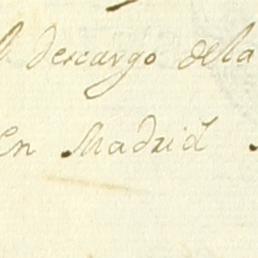 descargo dela
En Madrid